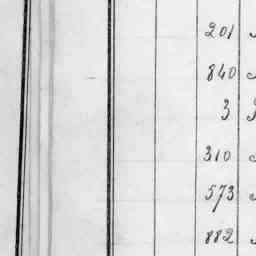 201
840
3
310
573
882